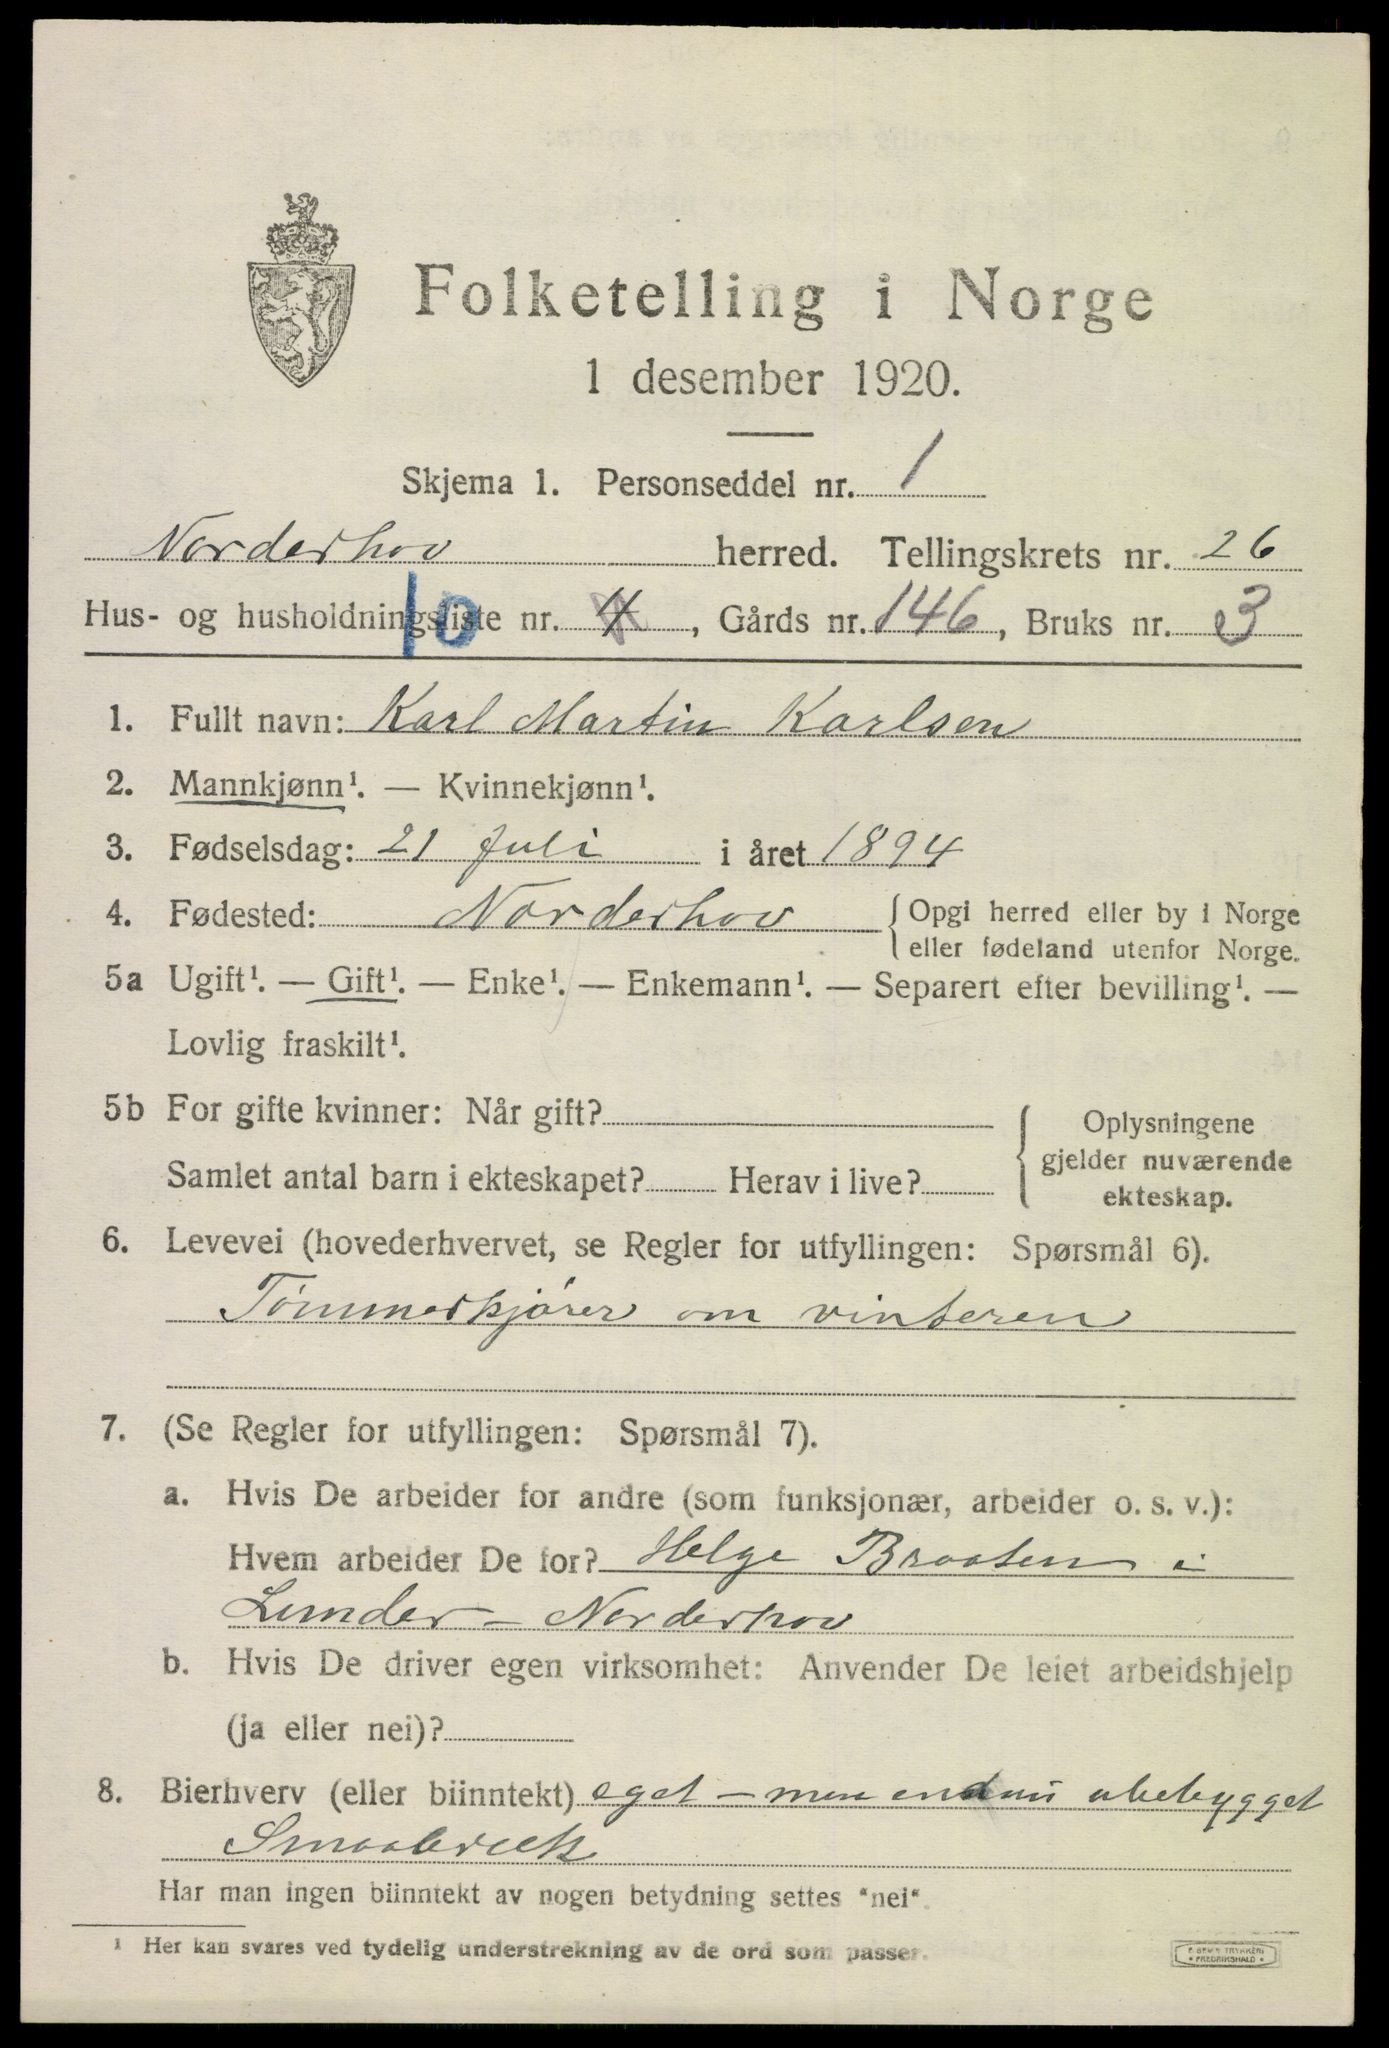 Folketelling i Norge
1 desember 1920.
Skjema 1. Personseddel nr. 1
Norderhov herred. Tellingskrets nr. 26
Hus- og husholdningsliste nr. 4 10, Gårds nr. 146, Bruks nr. 3
1. Fullt navn: Karl Martin Karlsen
2. Mannkjønn¹. — Kvinnekjønn¹.
3. Fødselsdag: 21 Juli i året 1894
4. Fødested: Norderhov {Opgi herred eller by i Norge
eller fødeland utenfor Norge.
5a Ugift¹. — Gift¹. — Enke¹. — Enkemann¹. — Separert efter bevilling¹. —
Lovlig fraskilt¹.
5b For gifte kvinner: Når gift?
Samlet antal barn i ekteskapet? Herav i live?
Oplysningene
gjelder nuværende
ekteskap.
6. Levevei (hovederhvervet, se Regler for utfyllingen: Spørsmål 6).
Tömmerkjörer om vinteren
7. (Se Regler for utfyllingen: Spørsmål 7).
a. Hvis De arbeider for andre (som funksjonær, arbeider o. s. v.):
Hvem arbeider De for? Helge Braaten i
Lunder - Norderhov
b. Hvis De driver egen virksomhet: Anvender De leiet arbeidshjelp
(ja eller nei)?
8. Bierhverv (eller biinntekt) eget - men endnu ubebygget
Smaabruk
Har man ingen biinntekt av nogen betydning settes "nei".
¹ Her kan svares ved tydelig understrekning av de ord som passer.
TRYKKERI
FREDRIKSHALD